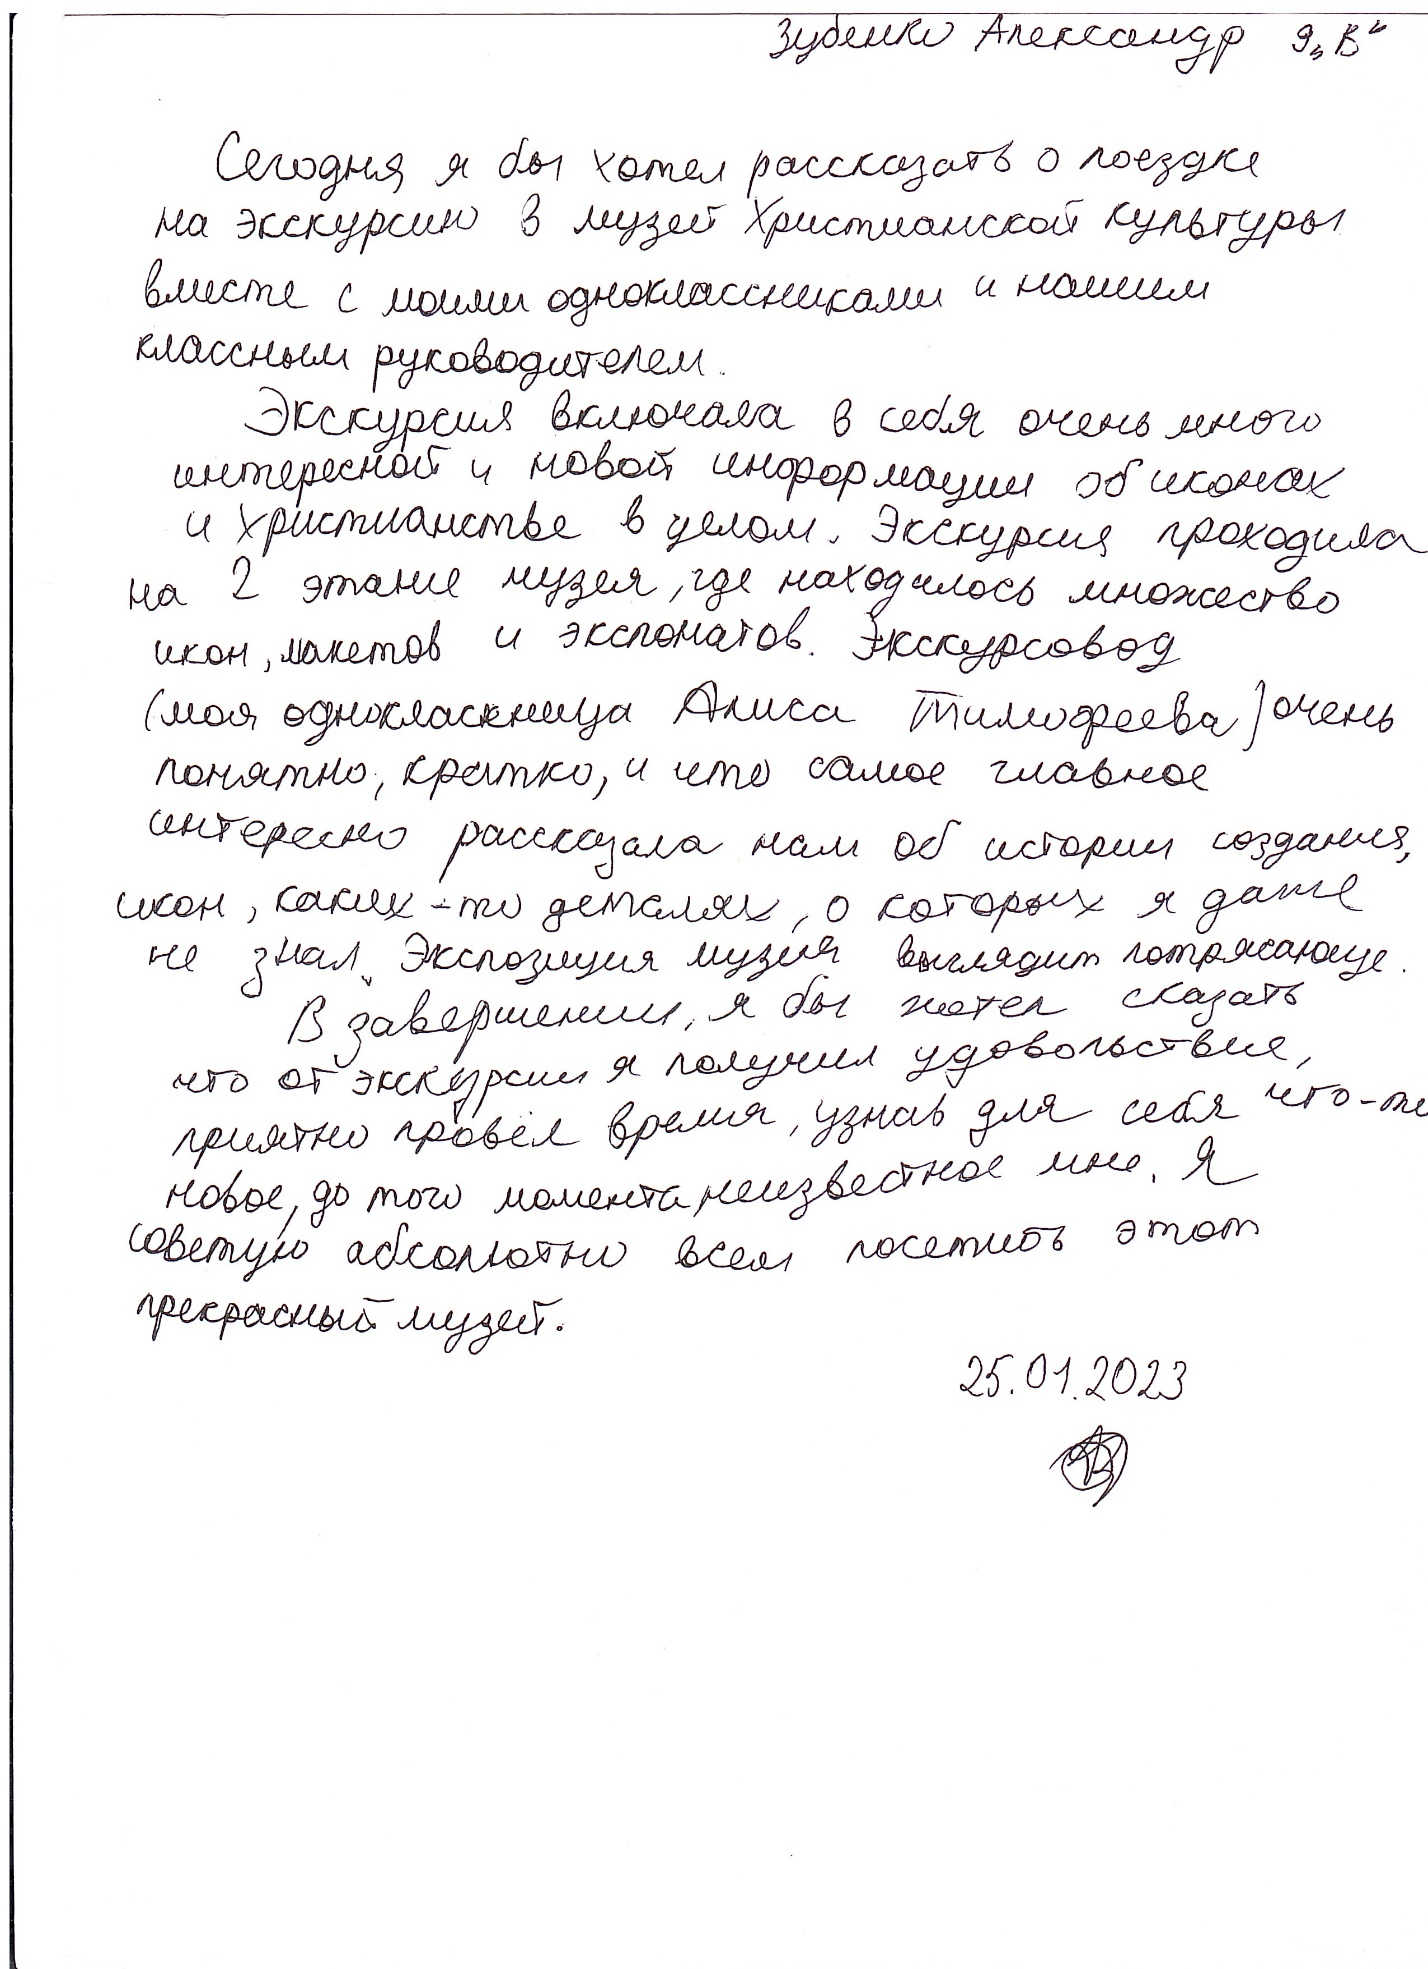 Зубенко Александр 9„В“
Сегодня я бы хотел рассказать о поездке
на экскурсию в музей Христианской культуры
вместе с моими одноклассниками и нашим
классным руководителем.
Экскурсия включала в себя очень много
интересной и новой информации об иконах
и христианстве в целом. Экскурсия проходила
на 2 этаже музея, где находилось множество
икон, макетов и экспонатов. Экскурсовод
(моя однокласкница Алиса Тимофеева) очень
понятно, кратко, и что самое главное
интересно рассказала нам об истории создания,
икон, каких-то деталях, о которых я даже
не знал. Экспозиция музея выглядит потрясающе.
В завершении, я бы хотел сказать
что от экскурсии я получил удовольствие,
приятно провёл время, узнав для себя что-то
новое, до того момента, неизвестное мне. Я
советую абсолютно всем посетить этот
прекрасный музей.
25.01.2023